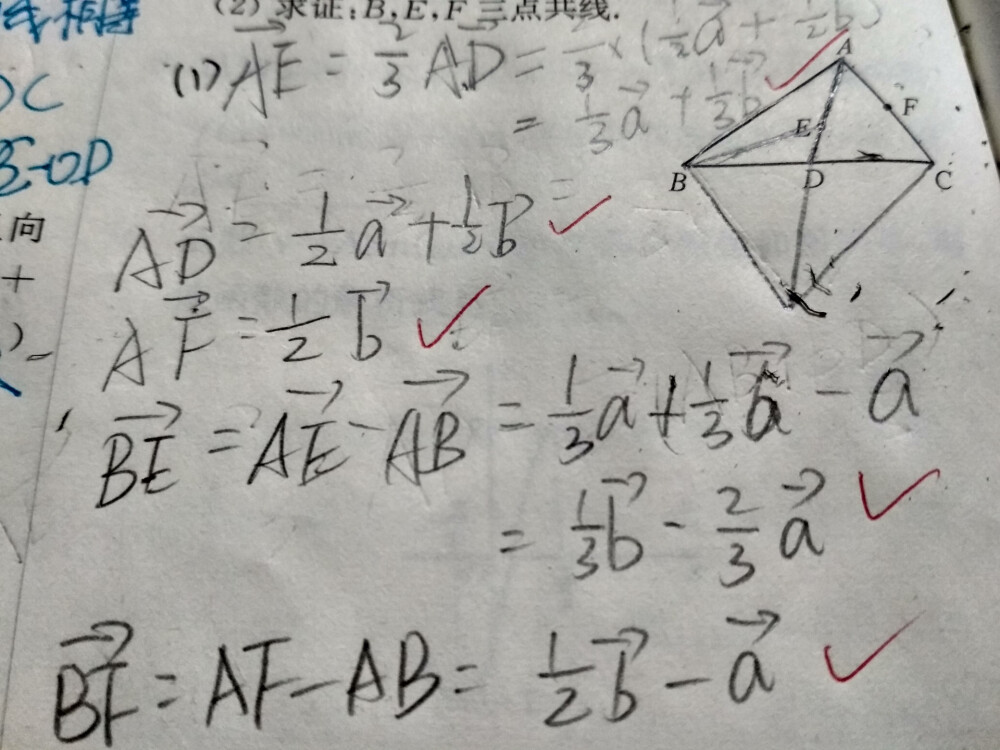 (2) 求证:B,E,F 三点共线.
(1) \vec{AE} = \frac{2}{3} \vec{AD} = \frac{2}{3} × (\frac{1}{2}\vec{a} + \frac{1}{2}\vec{b})
= \frac{1}{3}\vec{a} + \frac{1}{3}\vec{b}
A
F
E
B
D
C
DC
OD
向
+
\vec{AD} = \frac{1}{2}\vec{a} + \frac{1}{2}\vec{b}
\vec{AF} = \frac{1}{2}\vec{b}
\vec{BE} = \vec{AE} - \vec{AB} = \frac{1}{3}\vec{a} + \frac{1}{3}\vec{b} - \vec{a}
= \frac{1}{3}\vec{b} - \frac{2}{3}\vec{a}
\vec{BF} = AF - AB = \frac{1}{2}\vec{b} - \vec{a}